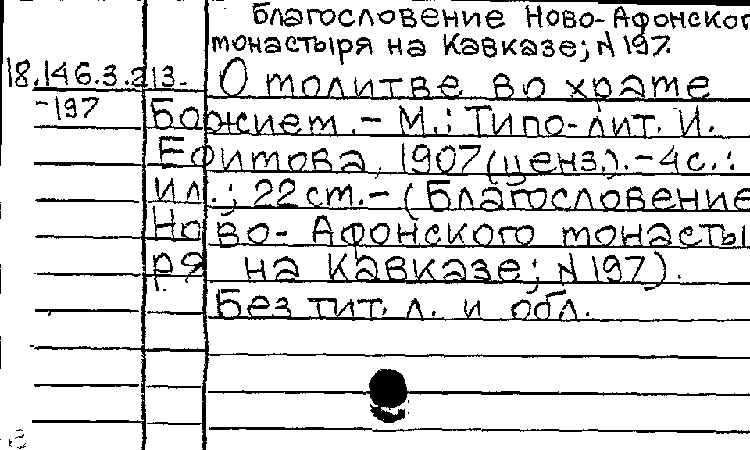 благословение Ново-Афонског
монастыря на Кавказе; N 197.
18.146.3.213. О молитве во храме
-197 Божием. - М.: Типо-лит. И.
Ефимова, 1907 (ценз.). - 4 с.:
ил.; 22 см. - (Благословение
Ново-Афонского монасты
ря на Кавказе; N 197).
Без тит. л. и обл.